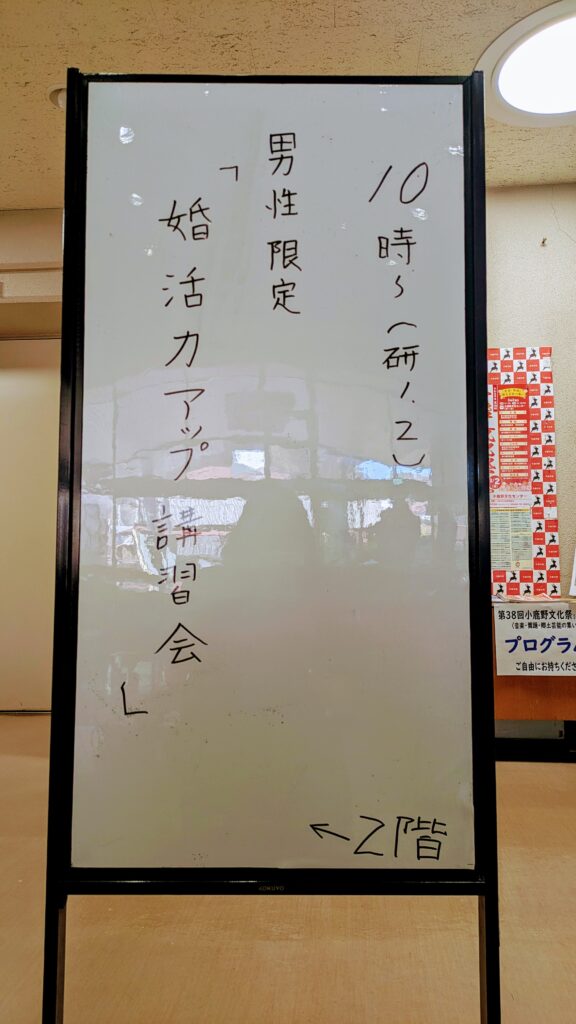 10時〜(研1.2)
男性限定
「婚活力アップ講習会」
←2階
KOKUYO
第38回小鹿野文化祭
(音楽・舞踊・郷土芸能の集い
プログラム
ご自由にお持ちくださ